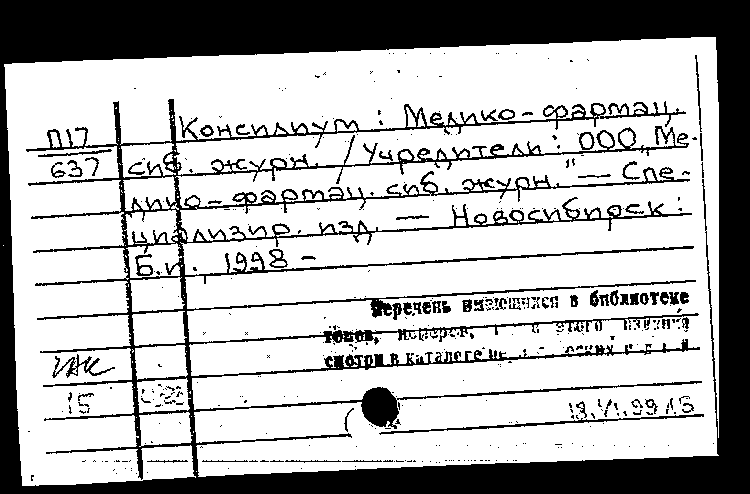 П17 Консилиум : Медико-фармац.
637 сиб. журн. / Учредители : ООО „Ме-
дико-фармац. сиб. журн." — Спе-
циализир. изд. — Новосибирск :
Б.и., 1998 -
Перечень имеющихся в библиотеке
томов, номеров, этого издания
смотри в каталоге
15
18.VI.99